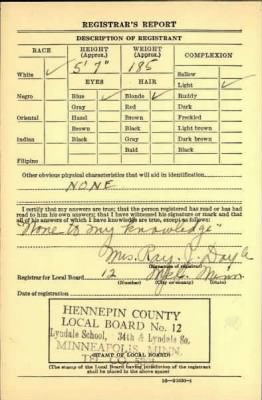 REGISTRAR'S REPORT
DESCRIPTION OF REGISTRANT
RACE HEIGHT (Approx.) WEIGHT (Approx.) COMPLEXION
5' 7" 185 Sallow
White ✓ EYES HAIR Light ✓
Negro Blue ✓ Blonde ✓ Ruddy
Gray Red Dark
Oriental Hazel Brown Freckled
Brown Black Light brown
Indian Black Gray Dark brown
Bald Black
Filipino
Other obvious physical characteristics that will aid in identification
NONE
I certify that my answers are true; that the person registered has read or has had
read to him his own answers; that I have witnessed his signature or mark and that
all of his answers of which I have knowledge are true, except as follows:
"None to my knowledge"
Mrs. Ray J. Doyle
(Signature of registrar)
Registrar for Local Board 12 Mpls. Minn.
(Number) (City or county) (State)
Date of registration
HENNEPIN COUNTY
LOCAL BOARD No. 12
Lyndale School, 34th & Lyndale So.
MINNEAPOLIS, MINN.
(STAMP OF LOCAL BOARD)
(The stamp of the Local Board having jurisdiction of the registrant
shall be placed in the above space)